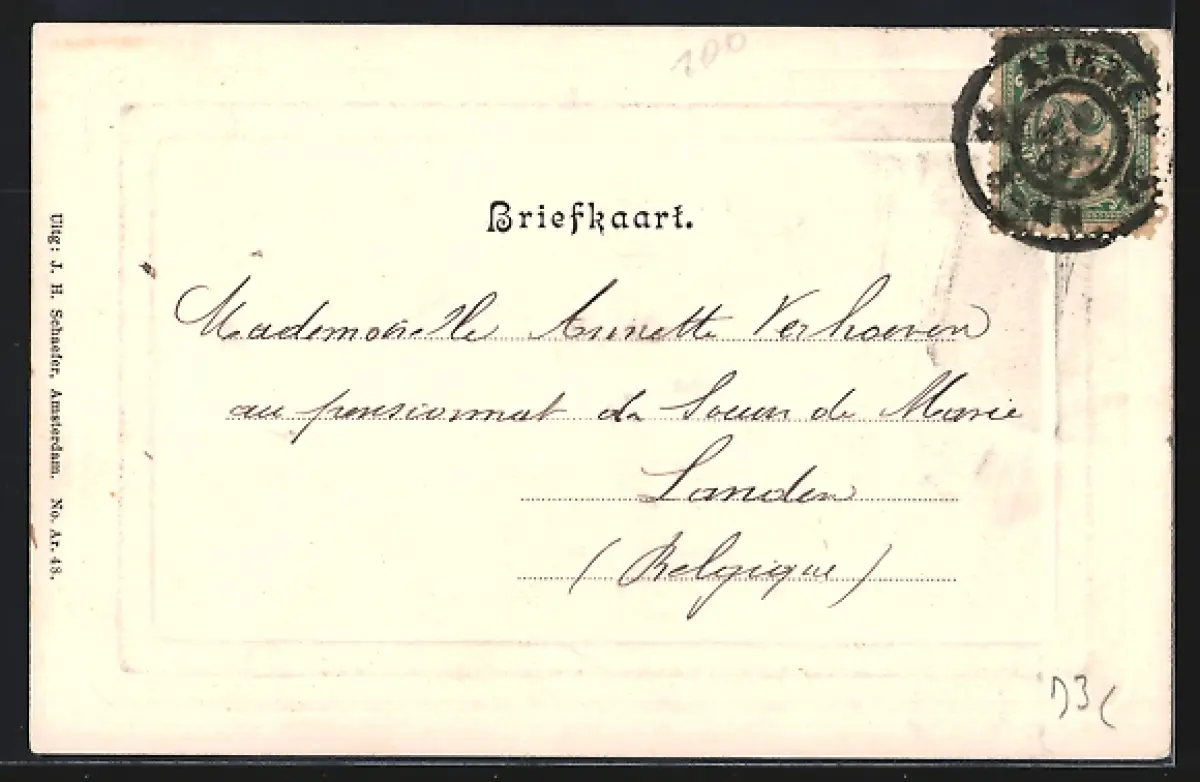 100
Briefkaart.
Mademoiselle Annette Verhoeven
au pensionnat de Soeurs de Marie
Landen
(Belgique)
Uitg: J. H. Schaefer, Amsterdam. No. Ar. 48.
2½